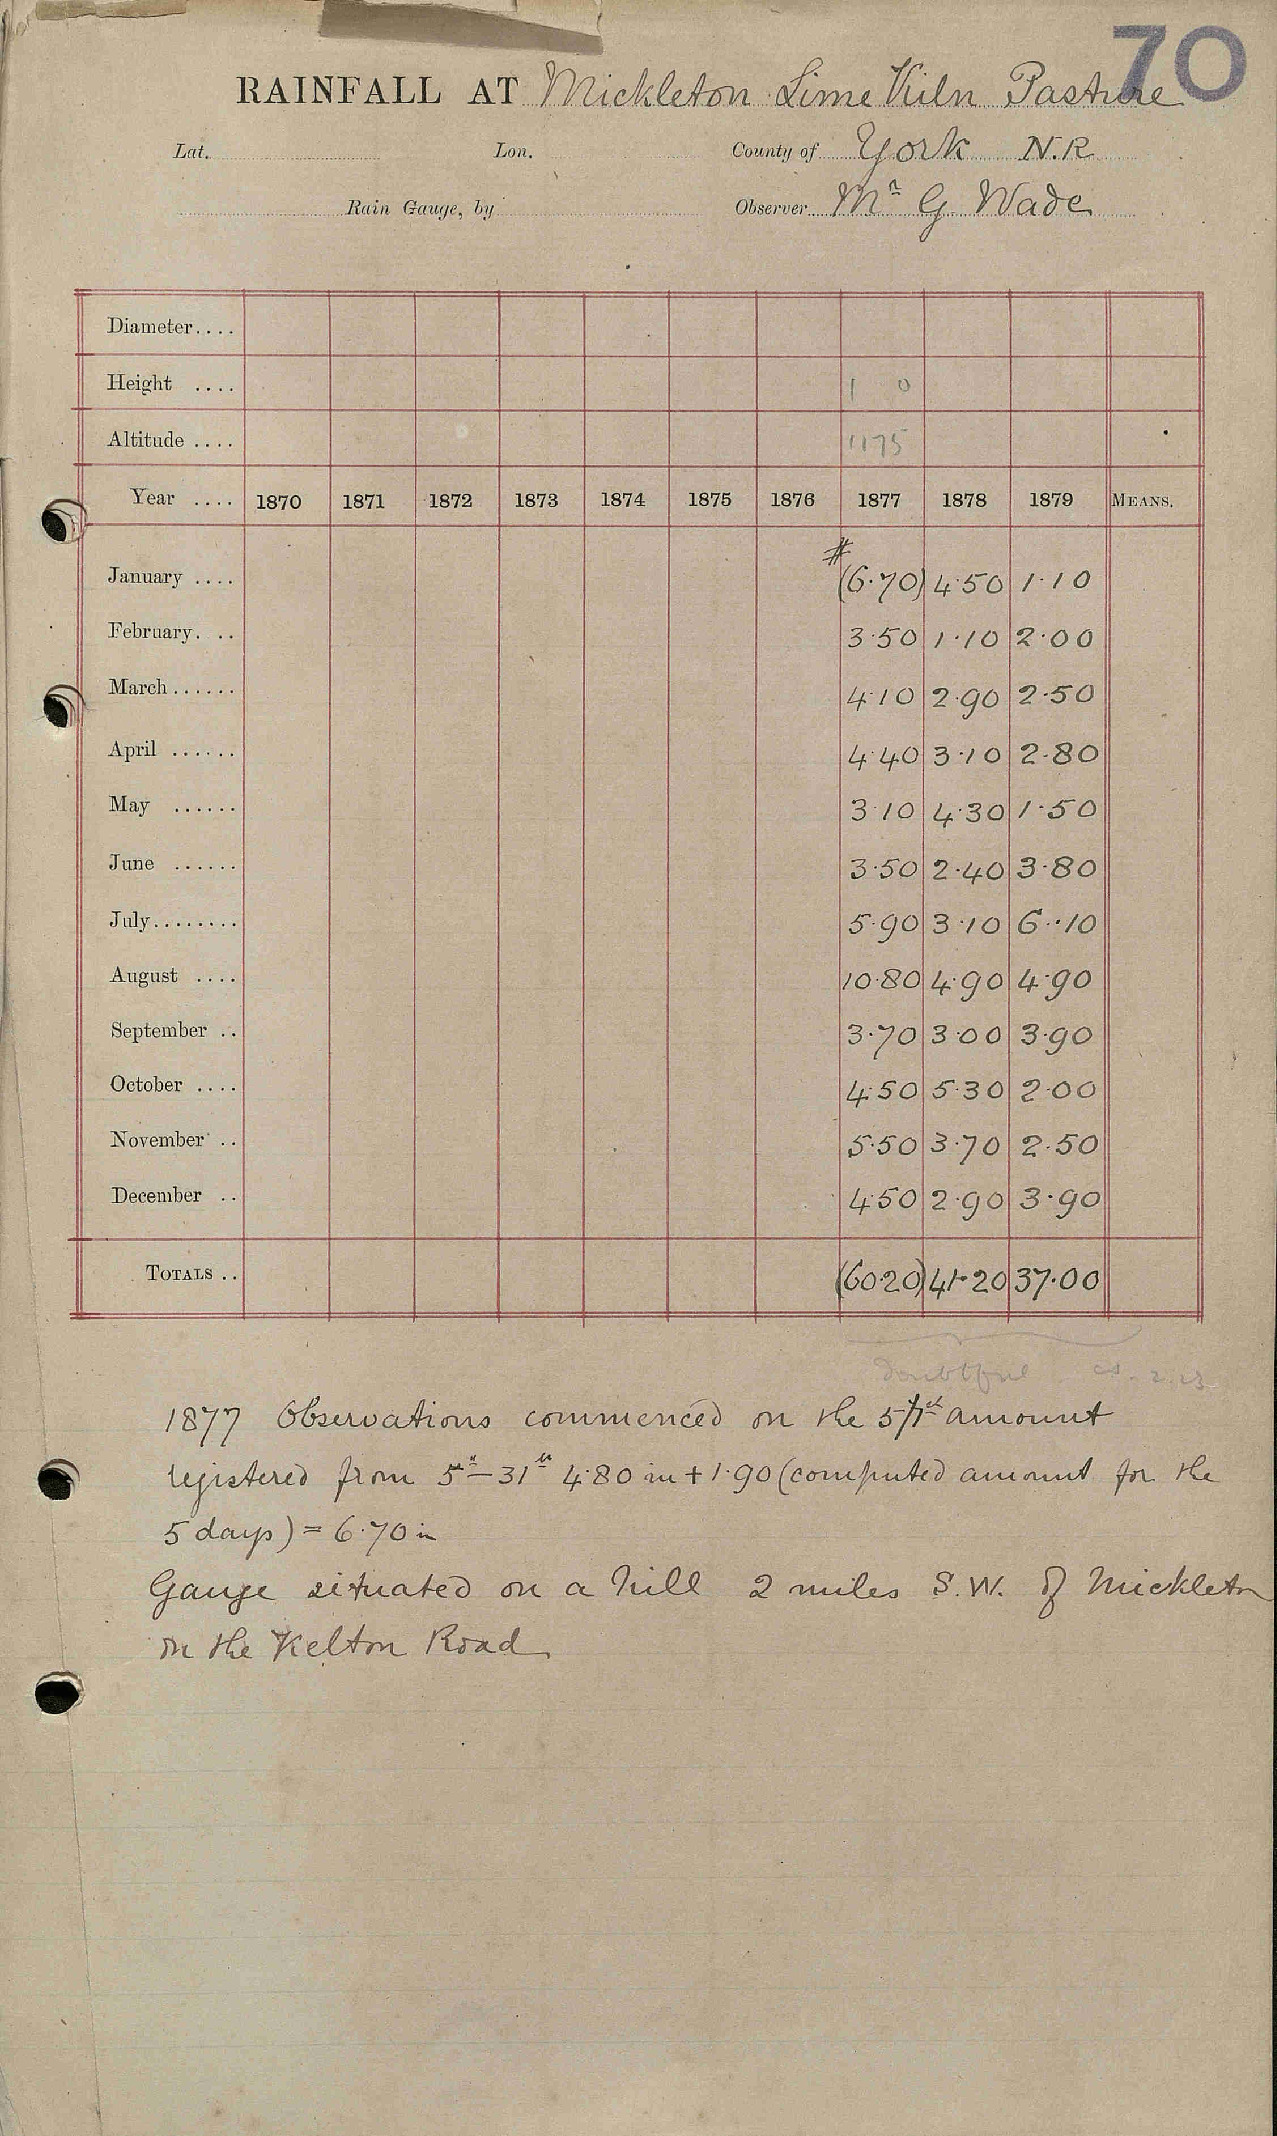 70
RAINFALL AT Mickleton Lime Kiln Pasture
Lat. Lon. County of York N.R
Rain Gauge, by Observer Mr G Wade
Diameter....
Height .... 1 0
Altitude .... 1175
Year .... 1870 1871 1872 1873 1874 1875 1876 1877 1878 1879 MEANS.
#
January .... (6.70) 4.50 1.10
February. .. 3.50 1.10 2.00
March...... 4.10 2.90 2.50
April ...... 4.40 3.10 2.80
May ...... 3.10 4.30 1.50
June ...... 3.50 2.40 3.80
July........ 5.90 3.10 6.10
August .... 10.80 4.90 4.90
September .. 3.70 3.00 3.90
October .... 4.50 5.30 2.00
November .. 5.50 3.70 2.50
December .. 4.50 2.90 3.90
TOTALS .. (60.20) 41.20 37.00
Doubtful
1877 Observations commenced on the amount
registered from 5th – 31st 4.80 in + 1.90 (computed amount for the
5 days) = 6.70 in
Gauge situated on a hill 2 miles S.W. of Mickleton
on the Kelton Road